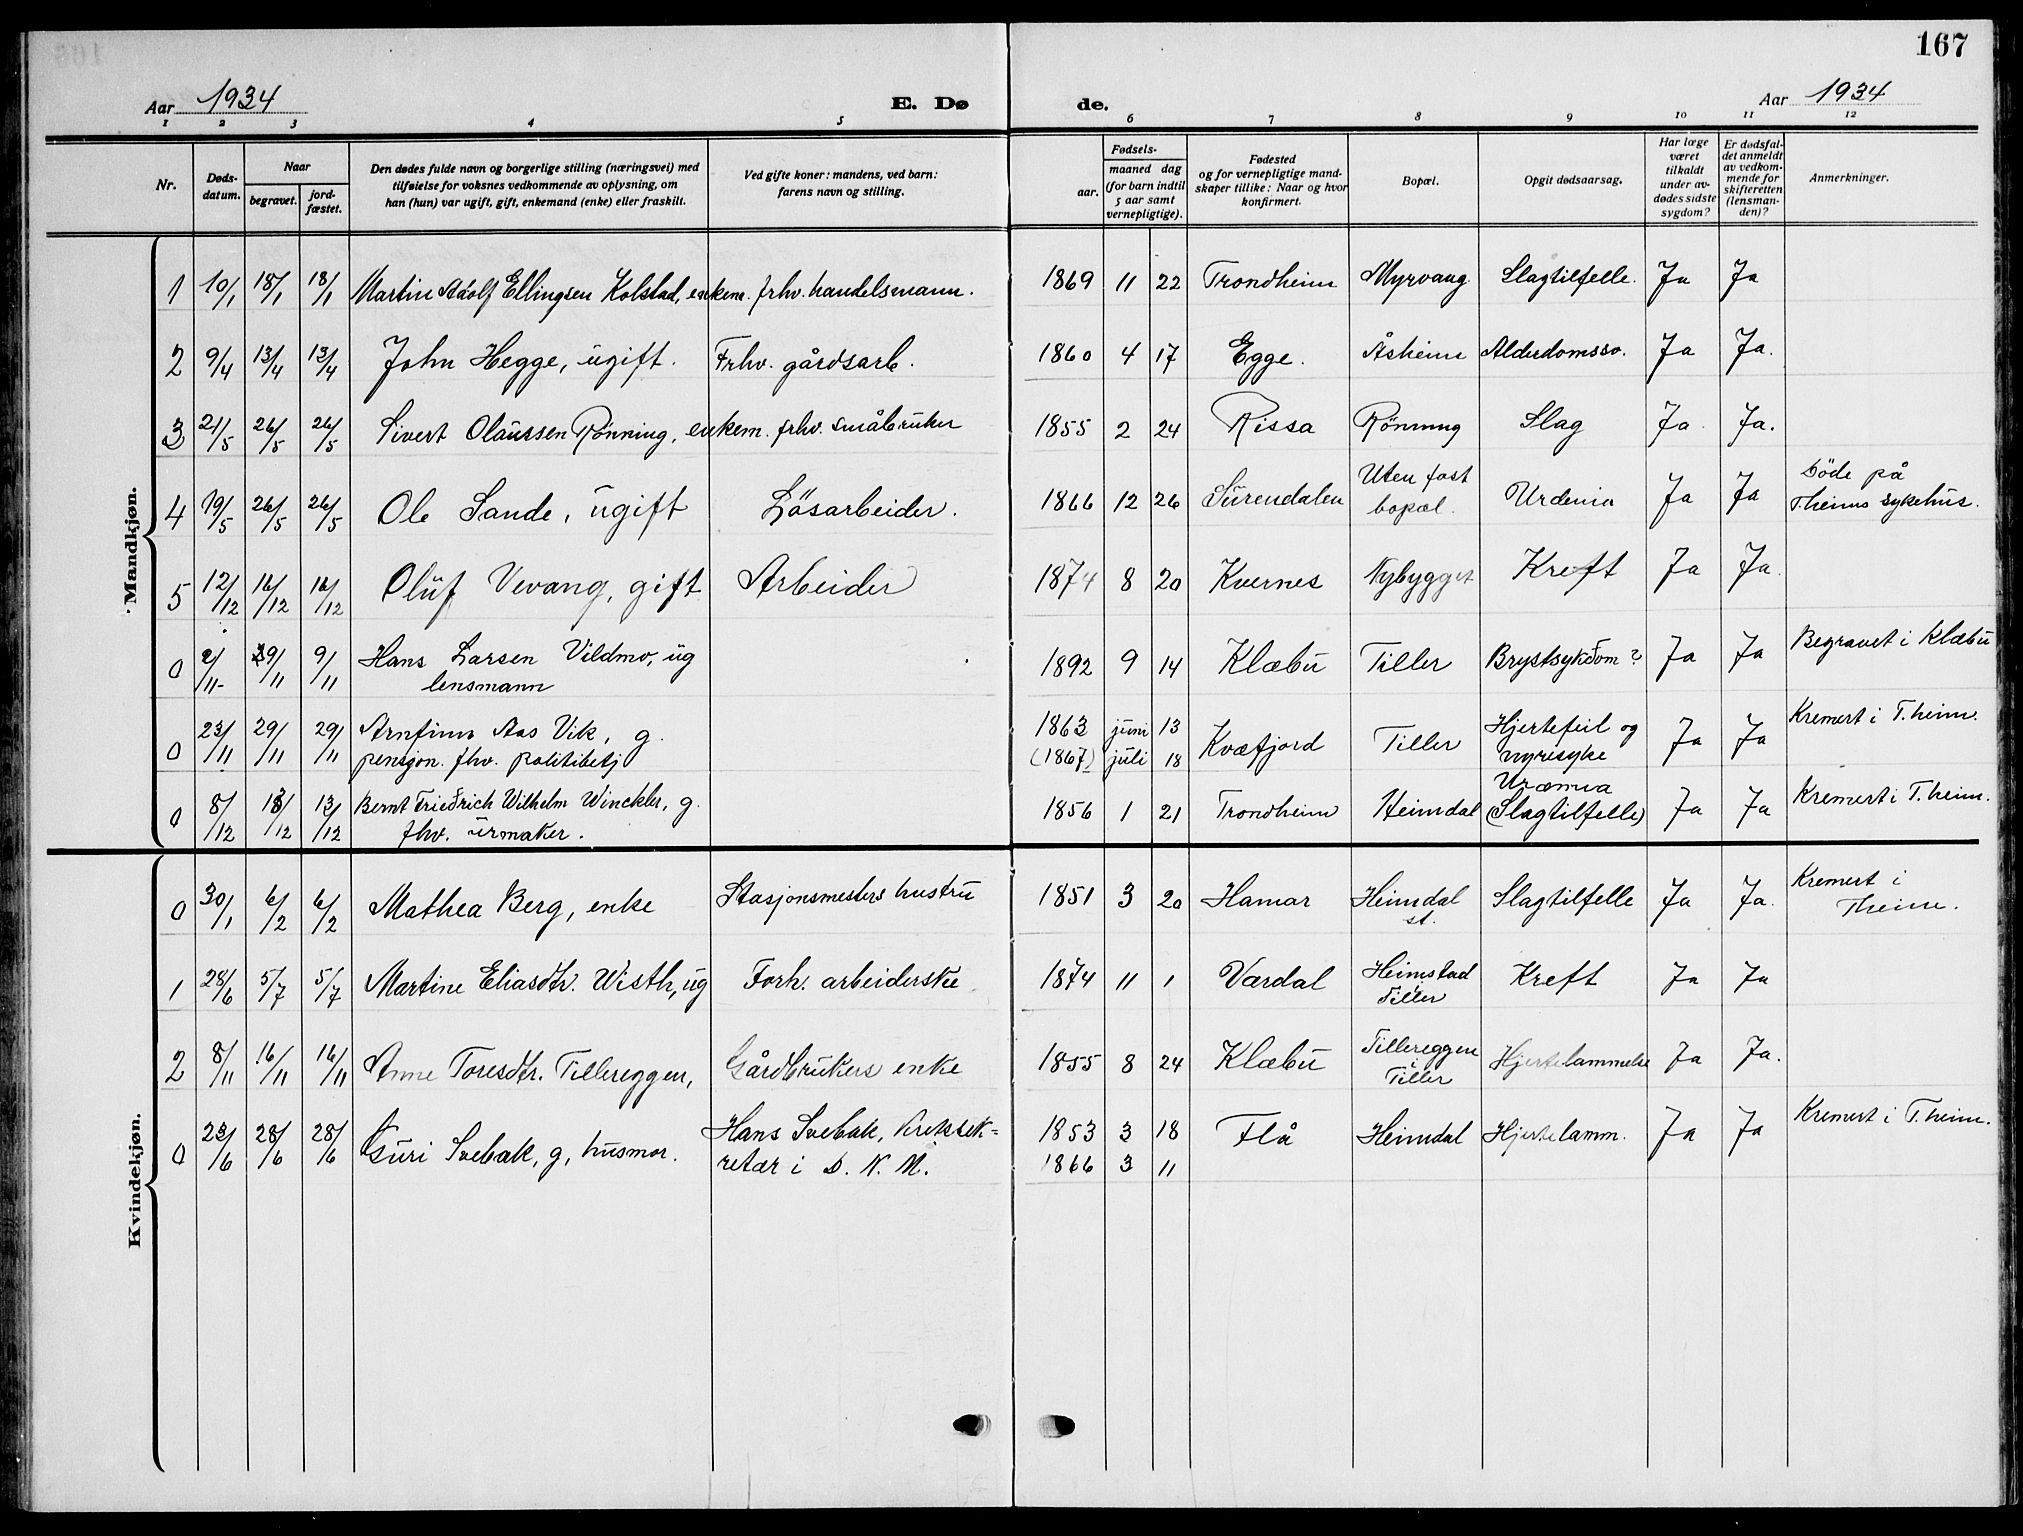 167
Aar 1934
E. Dø
de.
Aar 1934
1 2 3 4 5 6 7 8 9 10 11 12
Nr.
Døds-
datum.
Naar
begravet.
jord-
fæstet.
Den dødes fulde navn og borgerlige stilling (næringsvei) med
tilføielse for voksnes vedkommende av oplysning, om
han (hun) var ugift, gift, enkemand (enke) eller fraskilt.
Ved gifte koner: mandens, ved barn:
farens navn og stilling.
Fødsels-
aar.
maaned dag
(for barn indtil
5 aar samt
vernepligtige).
Fødested
og for vernepligtige mand-
skaper tillike: Naar og hvor
konfirmert.
Bopæl.
Opgit dødsaarsag.
Har læge
været
tilkaldt
under av-
dødes sidste
sygdom?
Er dødsfal-
det anmeldt
av vedkom-
mende for
skifteretten
(lensman-
den)?
Anmerkninger.
Mandkjøn.
1 10/1 18/1 18/1 Martin Adolf Ellingsen Kolstad, enkem. frhv. handelsmann. 1869 11 22 Trondheim Myrvang Slagtilfelle. Ja Ja
2 9/4 13/4 13/4 John Hegge, ugift. Frhv. gårdsarb. 1860 4 17 Egge. Åsheim Alderdomssv. Ja Ja.
3 21/5 26/5 26/5 Sivert Olaussen Rönning, enkem. frhv. småbruker 1855 2 24 Rissa Rönning Slag Ja Ja.
4 19/5 26/5 26/5 Ole Sande, ugift Lösarbeider. 1866 12 26 Surendalen Uten fast
bopæl. Urdenia Ja Ja Döde på
T.heims sykehus.
5 12/12 16/12 16/12 Oluf Vevang, gift Arbeider 1874 8 20 Kvernes Nybygget Kreft Ja Ja.
0 2/11 9/11 9/11 Hans Larsen Vildmo, ug
lensmann 1892 9 14 Klæbu Tiller Brystsykdom? Ja Ja Begravet i Klæbu
0 23/11 29/11 29/11 Arnfinn Aas Vik, g.
pensjon. fhv. politibetj 1863 juni 13
(1867) juli 18 Kvæfjord Tiller Hjertefeil og
nyresyke Ja Ja Kremert i T.heim.
0 8/12 13/12 13/12 Bernt Friedrich Wilhelm Winckler, g.
fhv. urmaker. 1856 1 21 Trondheim Heimdal Uræmia
(Slagtilfelle) Ja Ja Kremert i T.heim.
Kvindekjøn.
0 30/1 6/2 6/2 Mathea Berg, enke Stasjonsmesters hustru 1851 3 20 Hamar Heimdal
st. Slagtilfelle Ja Ja. Kremert i
Theim.
1 28/6 5/7 5/7 Martine Eliasdtr. Wisth, ug Forh. arbeiderske 1874 11 1 Værdal Heimstad
Tiller Kreft Ja Ja
2 8/11 16/11 16/11 Anne Toresdtr. Tillereggen, Gårdbrukers enke 1855 8 24 Klæbu Tillereggen
i
Tiller Hjertelammelse Ja Ja.
0 23/6 28/6 28/6 Guri Svebak, g, husmor. Hans Svebak, kretssek=
retær i D. N. M. 1853 3 18 Flå Heimdal Hjertelamm. Ja Ja Kremert i T.heim.
1866 3 11